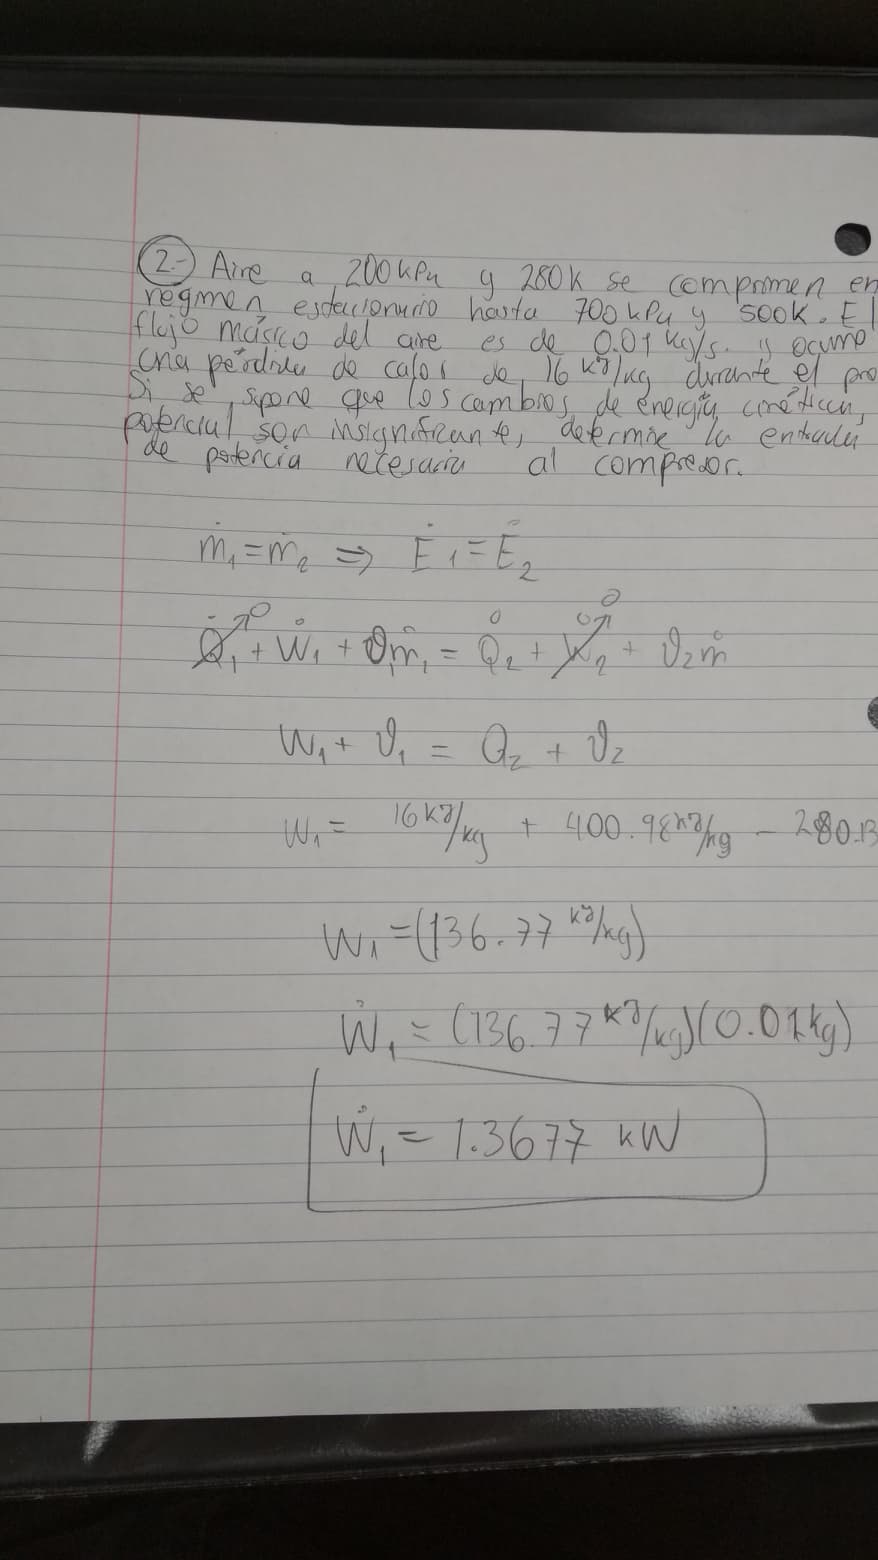 2.- Aire a 200 kPa y 280k se comprimen en
regimen estacionario hasta 700 kPa y 500k. El
flujo másico del aire es de 0.01 kg/s. y ocurre
una pérdida de calor de 16 kJ/kg durante el pro
Si se supone que los cambios de energía cinética,
potencial son insignificante, determine la entrada
de potencia necesaria al compresor.
ṁ₁ = ṁ₂ ⇒ Ė₁ = Ė₂
Q̇₁↗0 + Ẇ₁ + θ₁ṁ₁ = Q̇₂ + Ẇ₂↗0 + θ₂ṁ
W₁ + θ₁ = Q₂ + θ₂
W₁ = 16 kJ/kg + 400.98 kJ/kg - 280.13
W₁ = (136.77 kJ/kg)
Ẇ₁ = (136.77 kJ/kg)(0.01kg)
Ẇ₁ = 1.3677 kW